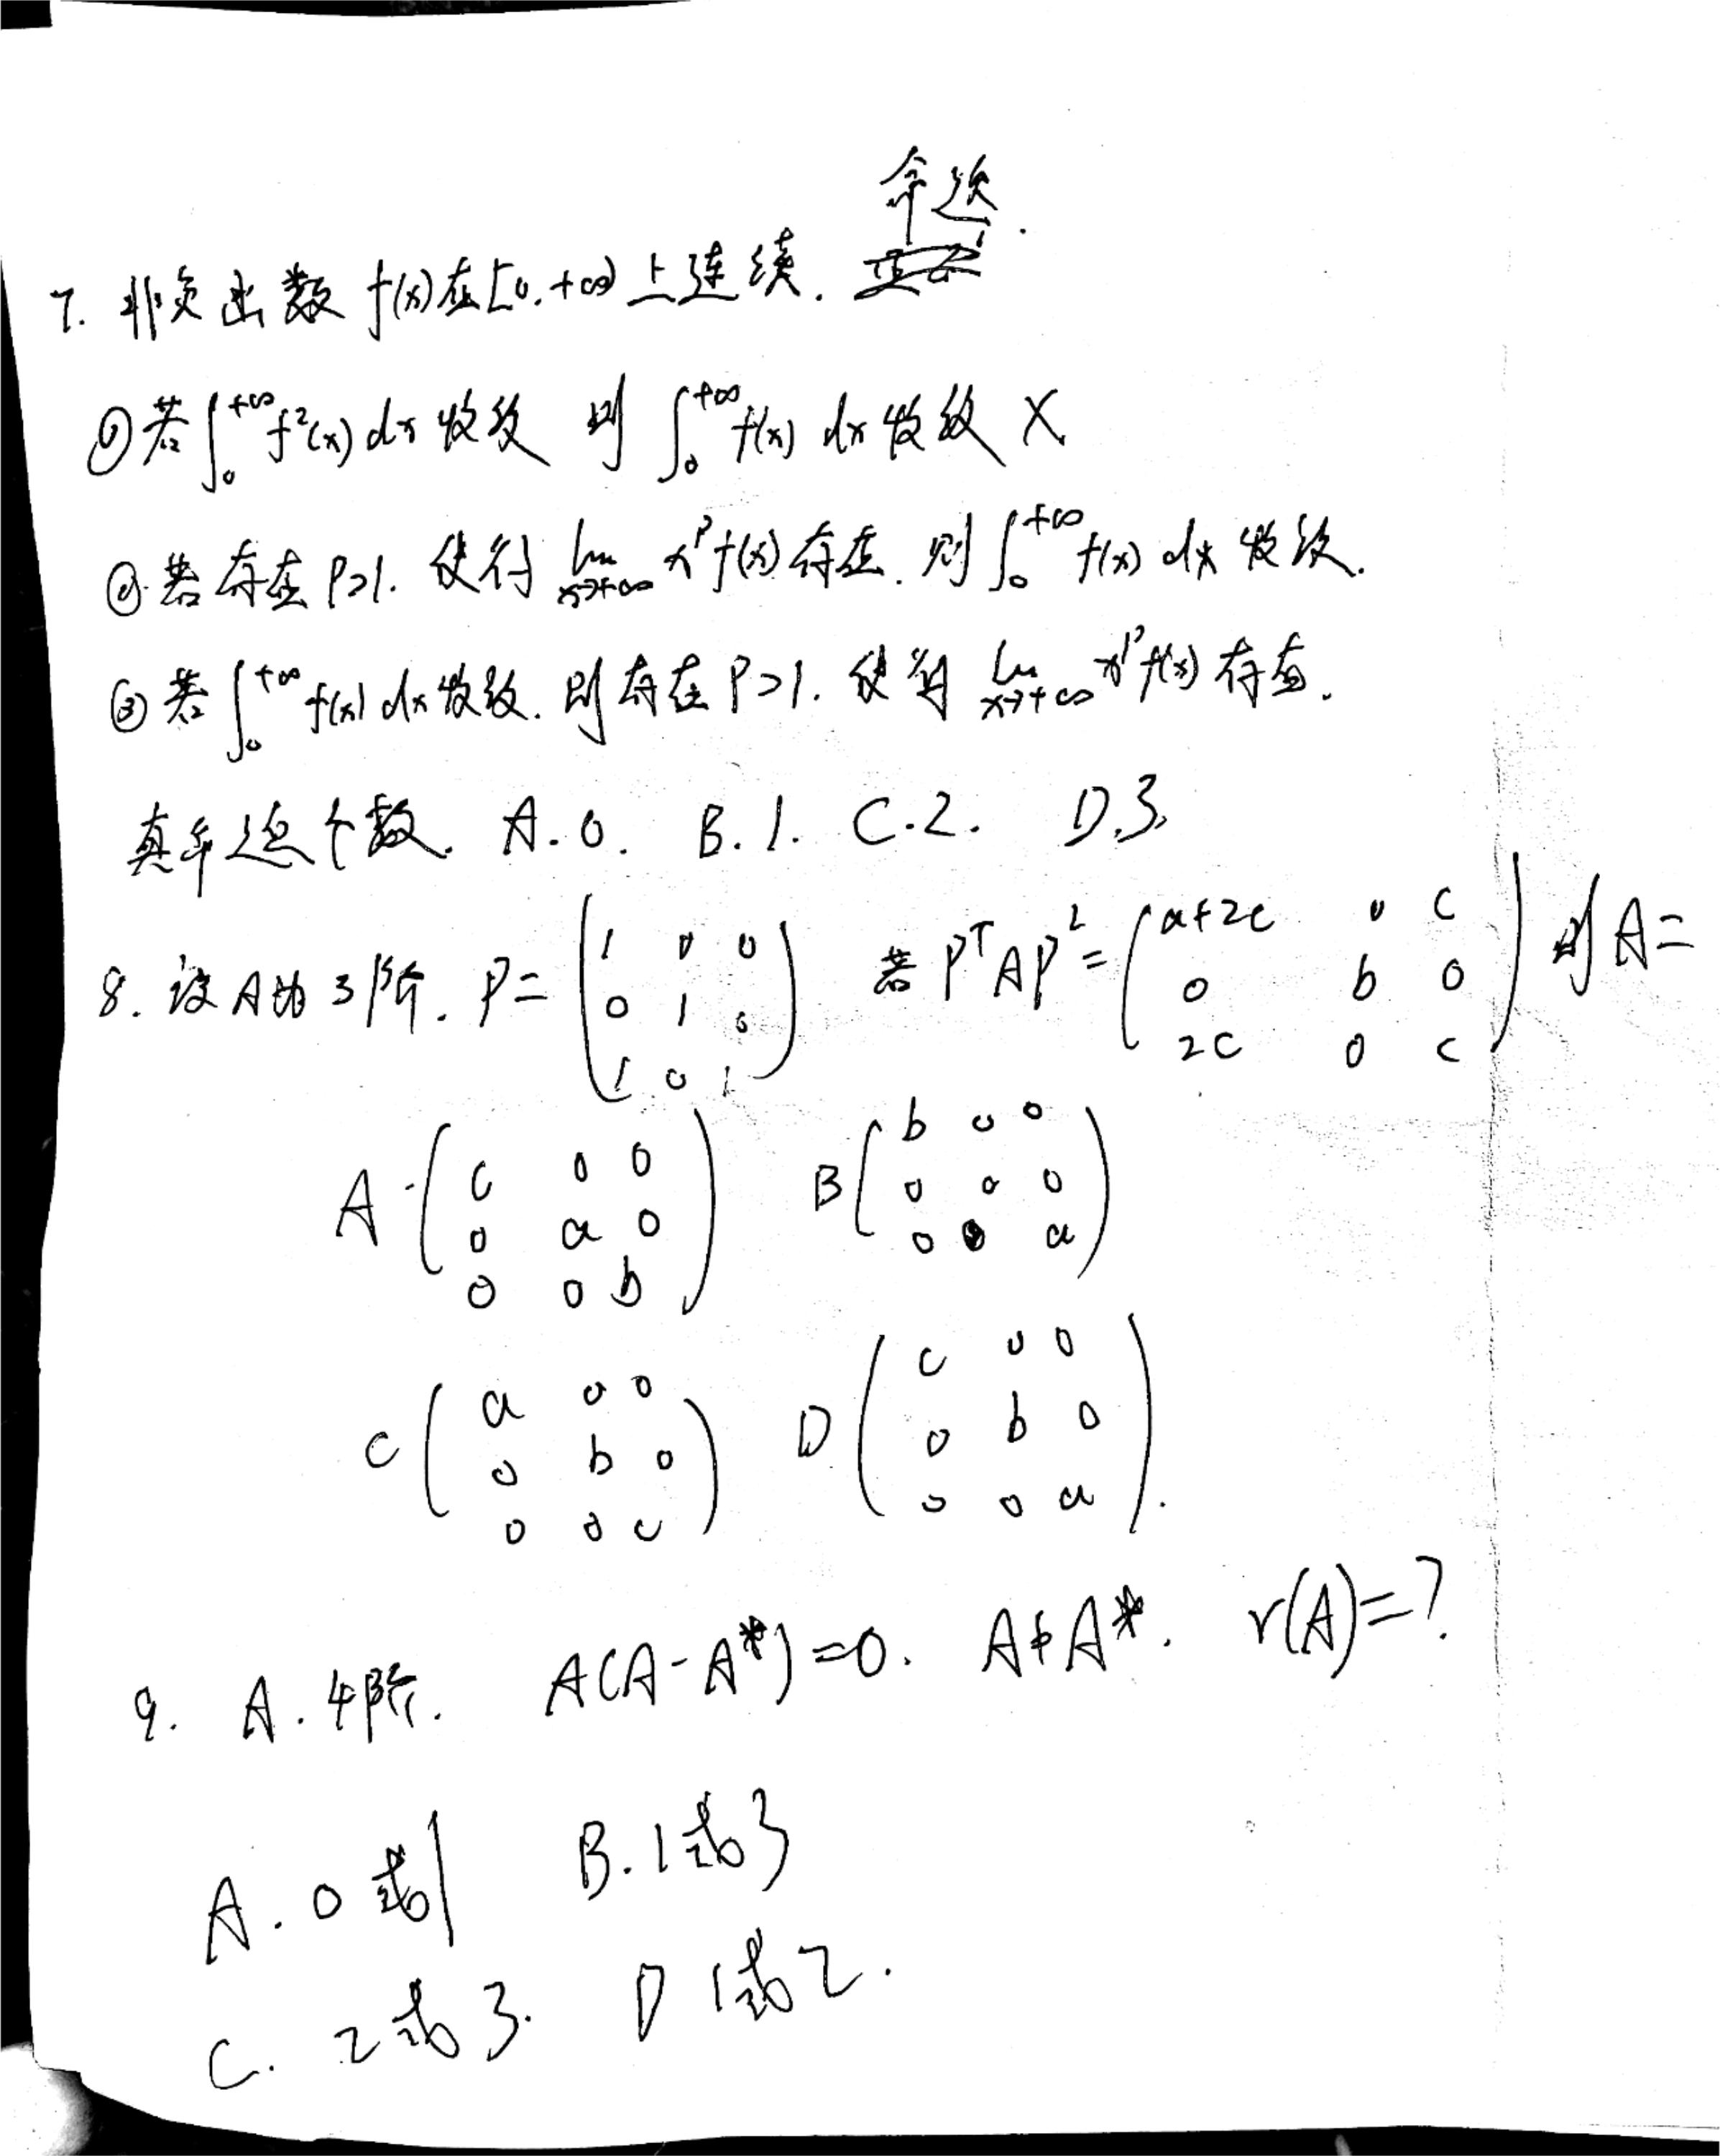 命题.
7. 非负函数 f(x)在[0,+∞)上连续.
①若∫₀^{+∞} f²(x) dx 收敛 则 ∫₀^{+∞} f(x) dx 收敛 X
②若存在 P>1. 使得 lim_{x→+∞} x^P f(x) 存在. 则 ∫₀^{+∞} f(x) dx 收敛.
③若 ∫₀^{+∞} f(x) dx 收敛. 则存在 P>1. 使得 lim_{x→+∞} x^P f(x) 存在.
真命题个数. A.0. B.1. C.2. D.3.
8. 设 A为 3阶. P= (1 0 0; 0 1 0; 1 0 1) 若 P^T A P² = (a+2c 0 c; 0 b 0; 2c 0 c) 则 A=
A. (c 0 0; 0 a 0; 0 0 b) B (b 0 0; 0 0 0; 0 0 a)
C (a 0 0; 0 b 0; 0 0 c) D (c 0 0; 0 b 0; 0 0 a).
9. A. 4阶. A(A-A*)=0. A≠A*. r(A)=?
A. 0或1 B. 1或3
C. 2或3. D 1或2.